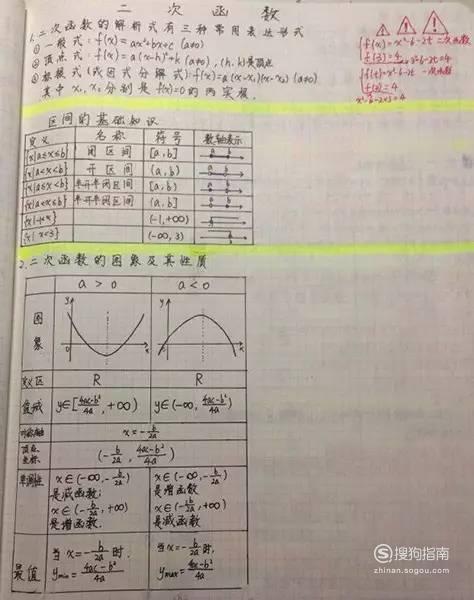 二次函数
1.二次函数的解析式有三种常用表达形式
①一般式:f(x)=ax²+bx+c (a≠0)
②顶点式:f(x)=a(x-h)²+k (a≠0),(h,k)是顶点
③标根式(或因式分解式):f(x)=a(x-x₁)(x-x₂) (a≠0)
其中x₁,x₂分别是f(x)=0的两实根.
f(x)=x²-6-2t 二次函数
f(a)=4
f(t)=x²-6-2t 一次函数
f(a)=4
区间的基础知识
定义 名称 符号 数轴表示
{x|a≤x≤b} 闭区间 [a,b] a b
{x|a<x<b} 开区间 (a,b) a b
{x|a≤x<b} 半开半闭区间 [a,b) a b
{x|a<x≤b} 半开半闭区间 (a,b] a b
{x|-1<x} (-1,+∞)
{x|x<3} (-∞,3)
2.二次函数的图象及其性质
a>0 a<0
图象 y x 0 y x 0
定义区 R R
值域 y∈[4ac-b²/4a,+∞) y∈(-∞,4ac-b²/4a)
对称轴 x=-b/2a
顶点坐标 (-b/2a,4ac-b²/4a)
单调性 x∈(-∞,-b/2a) x∈(-∞,-b/2a)
是减函数; 是增函数
x∈(-b/2a,+∞) x∈(-b/2a,+∞)
是增函数. 是减函数
最值 当x=-b/2a时, 当x=-b/2a时,
ymin=4ac-b²/4a ymax=4ac-b²/4a
搜狗指南
zhinan.sogou.com